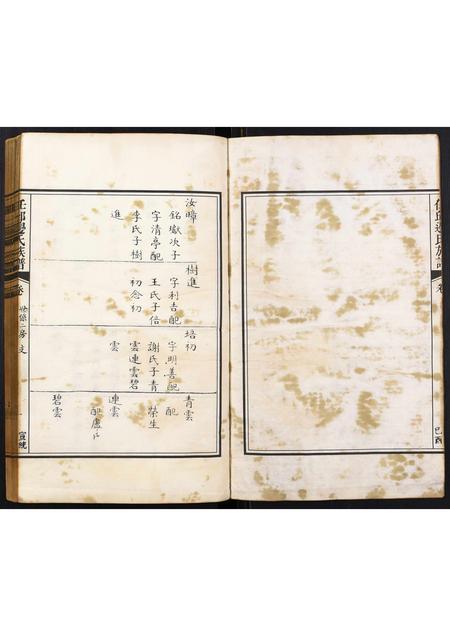 任邱邊氏族譜
卷
己酉
汝暲
銘嶽次子
字清亭配
李氏子樹
進
樹進
字利吉配
王氏子倍
初念初
培初
字明善配
謝氏子青
雲連雲碧
雲
青雲
配
榮生
連雲
配盧氏
碧雲
任邱邊氏族譜
卷
二房
宣統